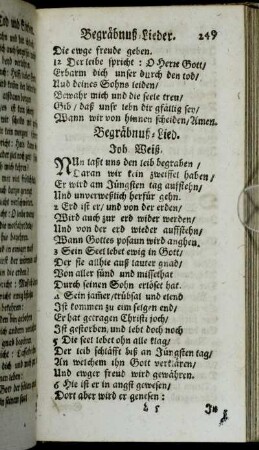 Begräbnuß-Lieder. 249
Die ewge freude geben.
12 Der leibe spricht: O Herre Gott/
Erbarm dich unser durch den tod/
Und deines Sohns leiden/
Bewahr mich und die seele treu/
Gib/ daß unser lebn dir gfällig sey/
Wann wir von hinnen scheiden/Amen.
Begräbnuß-Lied.
Joh. Weiß.
Nun laßt uns den leib begraben/
Daran wir kein zweiffel haben/
Er wird am Jüngsten tag auffstehn/
Und unverweßlich herfür gehn.
2 Erd ist er/ und von der erden/
Wird auch zur erd wider werden/
Und von der erd wieder aufftstehn/
Wann Gottes posaun wird angehn.
3 Sein Seel lebet ewig in Gott/
Der sie allhie auß lauter gnad/
Von aller sünd und missethat
Durch seinen Sohn erlöset hat.
4 Sein jam̃er/trübsal und elend
Ist kommen zu eim selgen end/
Er hat getragen Christi joch/
Ist gestorben/ und lebt doch noch
5 Die seel lebet ohn alle klag/
Der leib schläfft biß an Jüngsten tag/
An welchem ihn Gott verklären/
Und ewger freud wird gewähren.
6 Hie ist er in angst gewesen/
Dort aber wird er genesen:
L 5 In